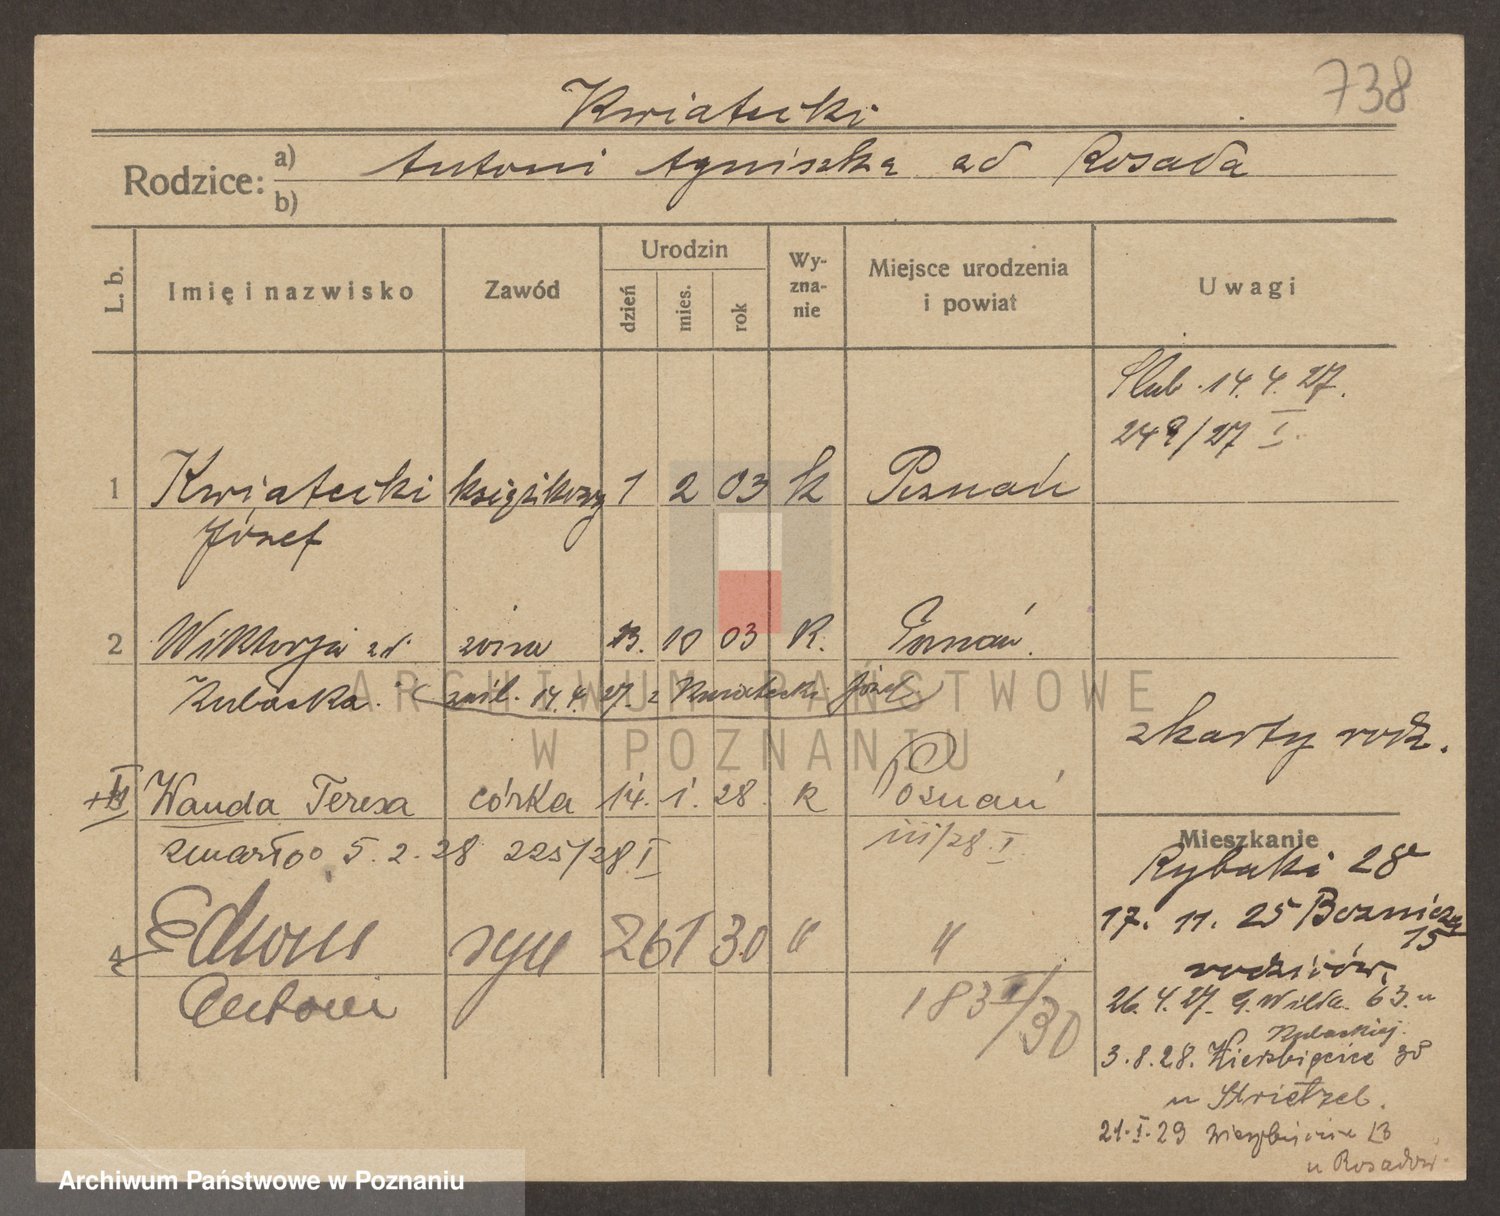 738
Kwiatecki
Rodzice: a) Antoni Agniszka ad Rosada
b)
L. b. Imię i nazwisko Zawód Urodzin dzień mies. rok Wy-zna-nie Miejsce urodzenia i powiat Uwagi
Slub 14. 4. 27.
249/27 I.
1 Kwiatecki książkowy 1 2 03 k Poznań
Józef
2 Wiktorja zd. żona 13. 10 03 K. Poznań.
Kubacka. (zaśl. 14. 4. 27. z Kwiatecki Józef)
z karty rodz.
Wanda Teresa córka 14. 1. 28. k Poznań
zmarło 5. 2. 28 225/28 I
111/28. I
4 Edwin syn 26 1 30 " "
Antoni
183 I/30
Mieszkanie
Rybaki 28
17. 11. 25 Bożnicza 15
rodziców.
26. 4. 27. G. Wilda. 63. u
Kubackiej.
3. 8. 28. Wierzbięcice 38
u Strietzel.
21. I. 29 Wierzbięcice 13
u Rosadów
ARCHIWUM PAŃSTWOWE
W POZNANIU
Archiwum Państwowe w Poznaniu